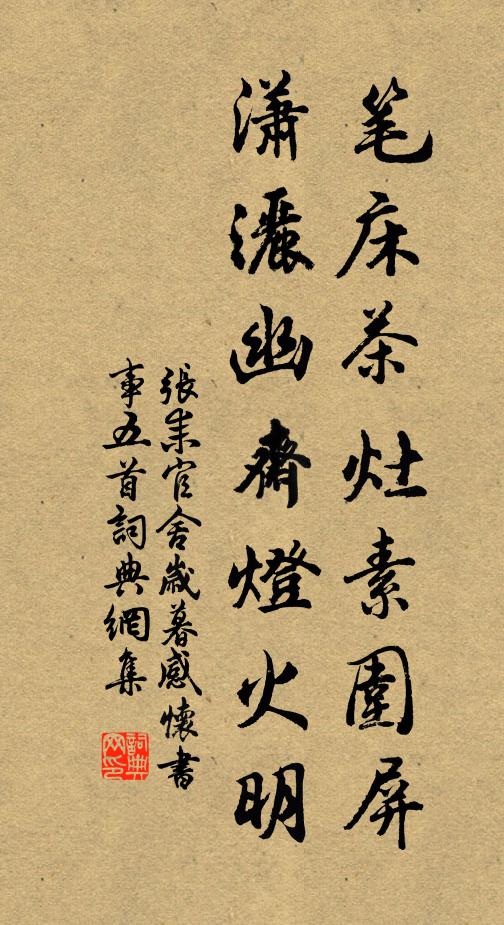 笔床茶灶素圍屏
瀟灑幽齋燈火明
張耒官舍歲暮感懷書
事五首詞典網集
詞典网印